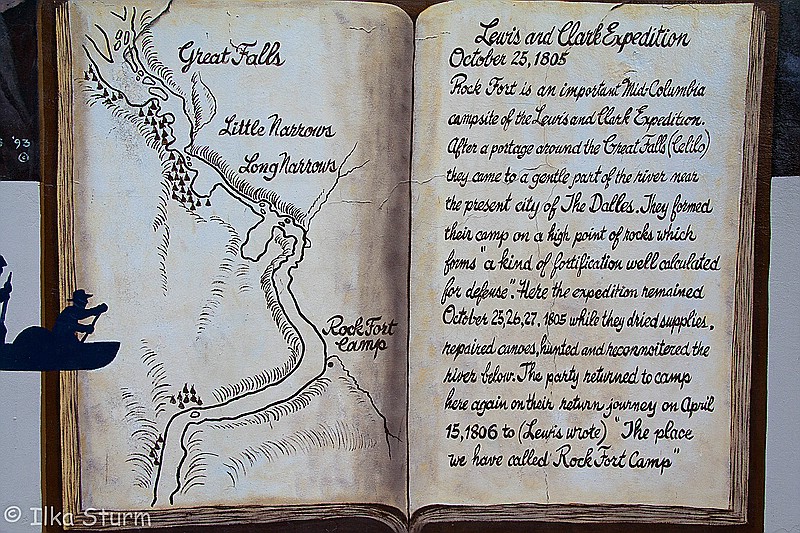 Great Falls
Little Narrows
Long Narrows
Rock Fort
Camp
'93
©
Lewis and Clark Expedition
October 25, 1805
Rock Fort is an important Mid-Columbia
campsite of the Lewis and Clark Expedition.
After a portage around the Great Falls (Celilo)
they came to a gentle part of the river near
the present city of The Dalles. They formed
their camp on a high point of rocks which
forms "a kind of fortification well calculated
for defense". Here the expedition remained
October 25, 26, 27, 1805 while they dried supplies,
repaired canoes, hunted and reconnoitered the
river below. The party returned to camp
here again on their return journey on April
15, 1806 to (Lewis wrote) "The place
we have called Rock Fort Camp"
© Ilka Sturm